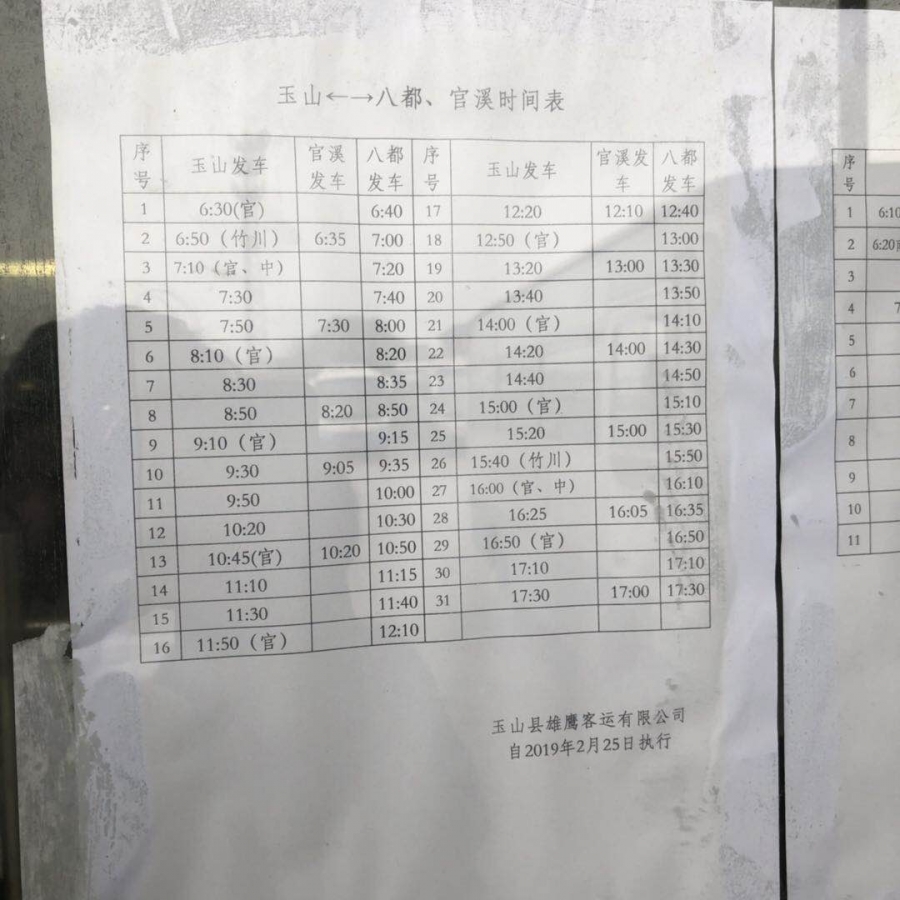 玉山←→八都、官溪时间表
序号 玉山发车 官溪发车 八都发车 序号 玉山发车 官溪发车 八都发车
1 6:30(官) 6:40 17 12:20 12:10 12:40
2 6:50（竹川） 6:35 7:00 18 12:50（官） 13:00
3 7:10（官、中） 7:20 19 13:20 13:00 13:30
4 7:30 7:40 20 13:40 13:50
5 7:50 7:30 8:00 21 14:00（官） 14:10
6 8:10（官） 8:20 22 14:20 14:00 14:30
7 8:30 8:35 23 14:40 14:50
8 8:50 8:20 8:50 24 15:00（官） 15:10
9 9:10（官） 9:15 25 15:20 15:00 15:30
10 9:30 9:05 9:35 26 15:40（竹川） 15:50
11 9:50 10:00 27 16:00（官、中） 16:10
12 10:20 10:30 28 16:25 16:05 16:35
13 10:45(官) 10:20 10:50 29 16:50（官） 16:50
14 11:10 11:15 30 17:10 17:10
15 11:30 11:40 31 17:30 17:00 17:30
16 11:50（官） 12:10
玉山县雄鹰客运有限公司
自2019年2月25日执行
序号
1
2
3
4
5
6
7
8
9
10
11